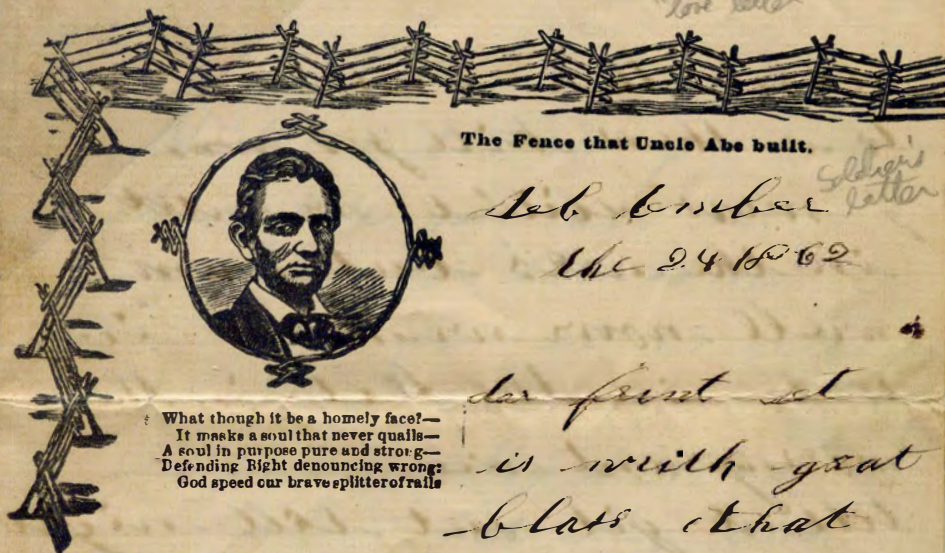 "love letter"
The Fence that Uncle Abe built.
Soldier's
letter
Seb tember
the 24 1862
What though it be a homely face?—
It masks a soul that never quails—
A soul in purpose pure and strong—
Defending Right denouncing wrong:
God speed our brave splitter of rails
der frint et
is writh grat
blass that